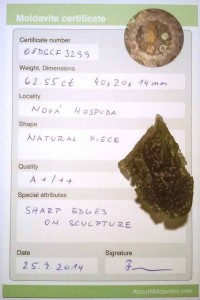 Moldavite certificate
Certificate number
08DSCF3299
Weight, Dimensions
62.55ct 40x20x14mm
Locality
NOVÁ HOSPODA
Shape
NATURAL PIECE
Quality
A+/++
Special attributes
SHARP EDGES
ON SCULPTURE
Date
Signature
25.9.2014
AboutMoldavites.com